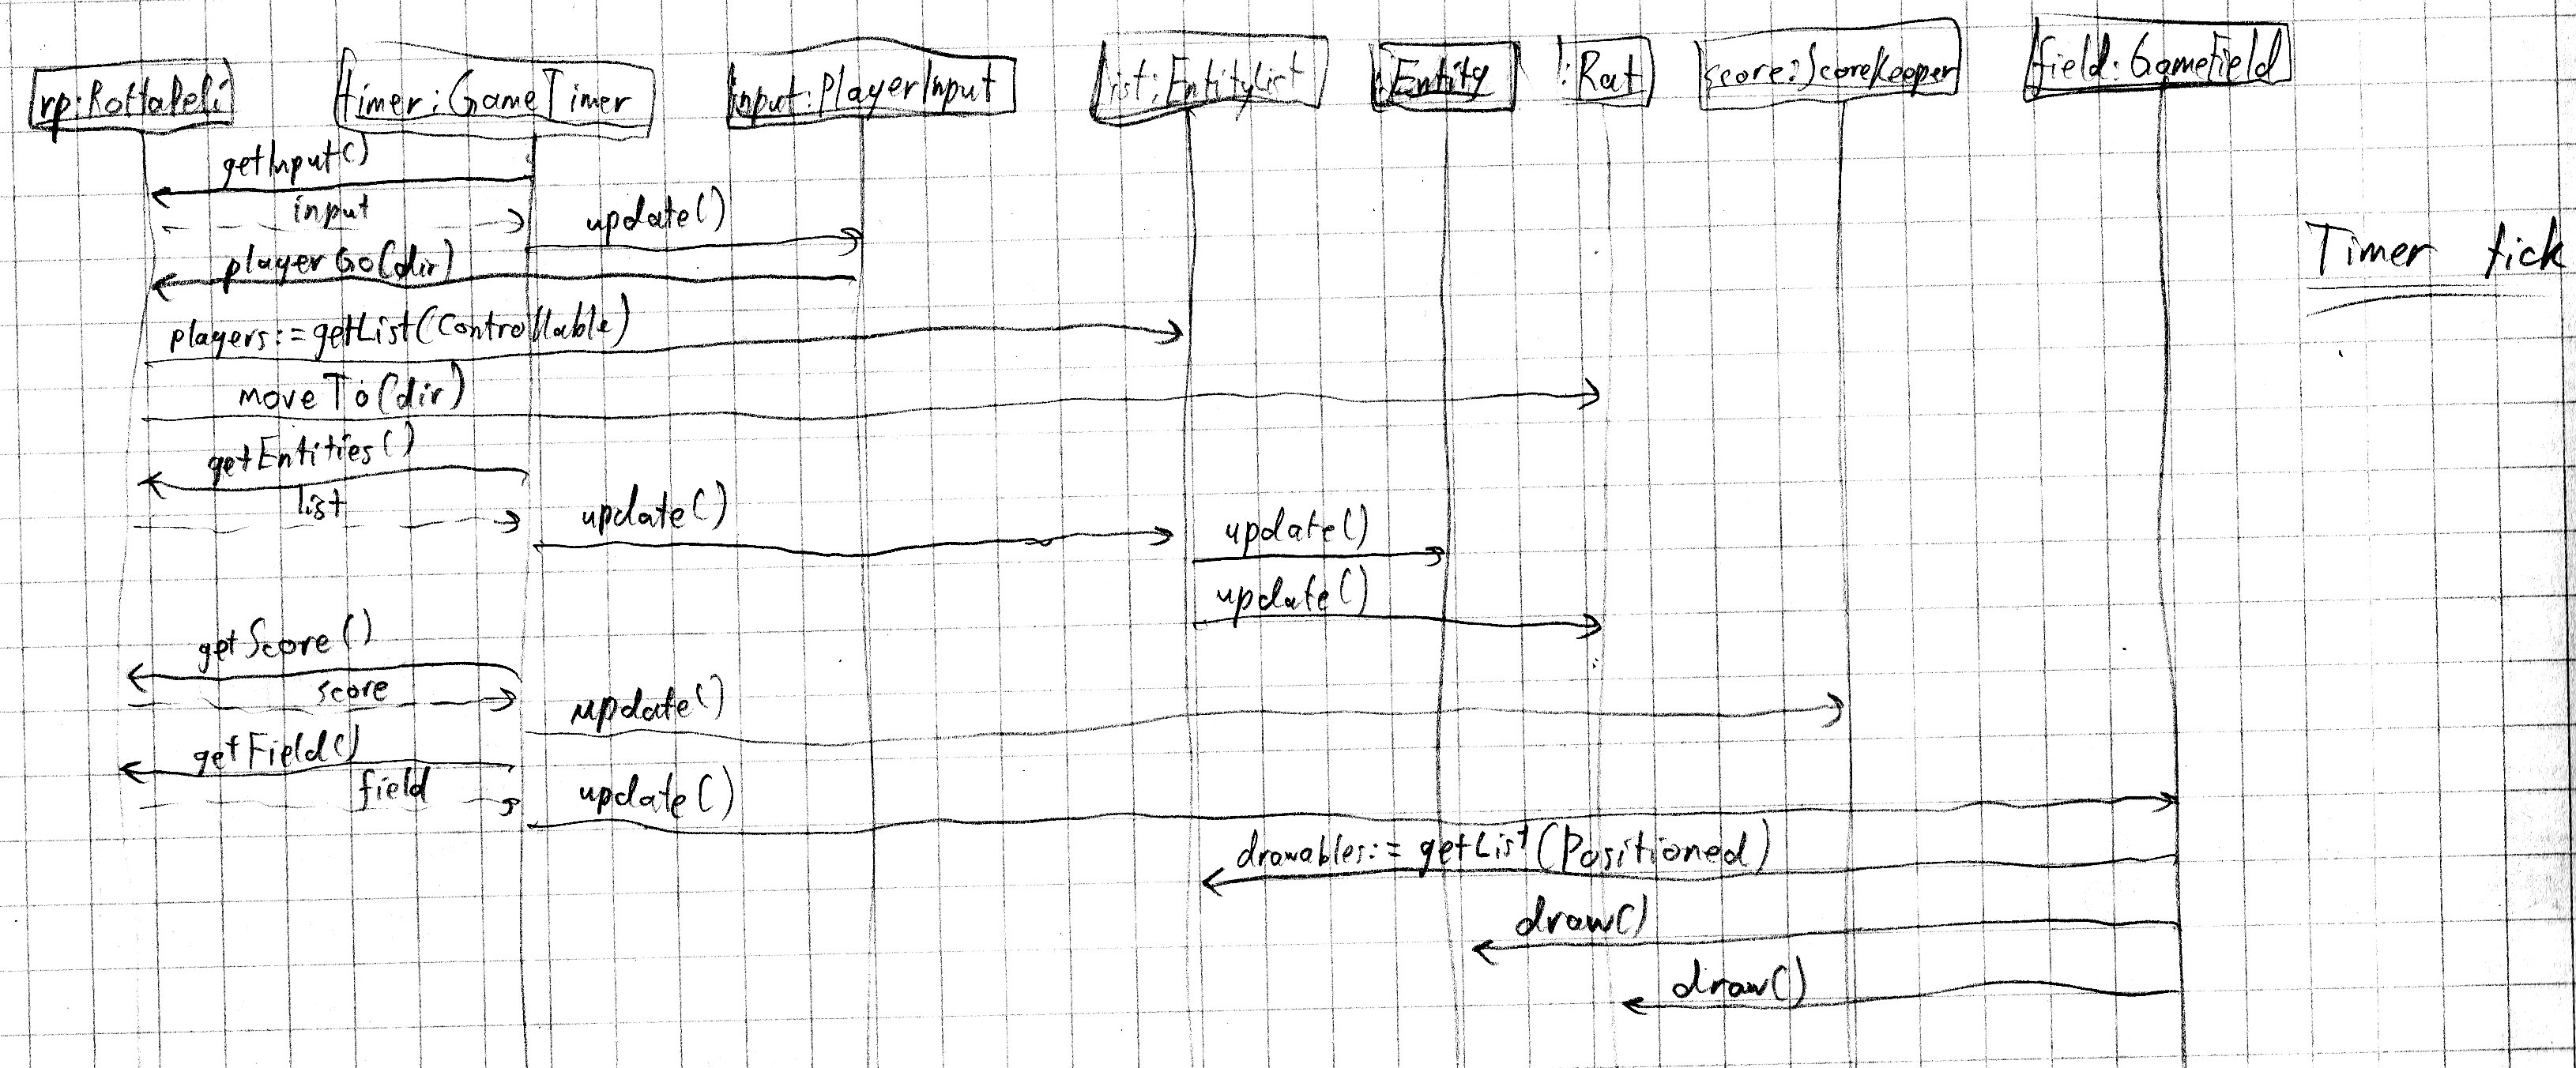 rp:RottaPeli
timer:GameTimer
input:PlayerInput
list:EntityList
:Entity
:Rat
score:ScoreKeeper
field:GameField
getInput()
input
update()
Timer tick
playerGo(dir)
players:=getList(Controllable)
moveTo(dir)
getEntities()
list
update()
update()
update()
getScore()
score
update()
getField()
field
update()
drawables:=getList(Positioned)
draw()
draw()